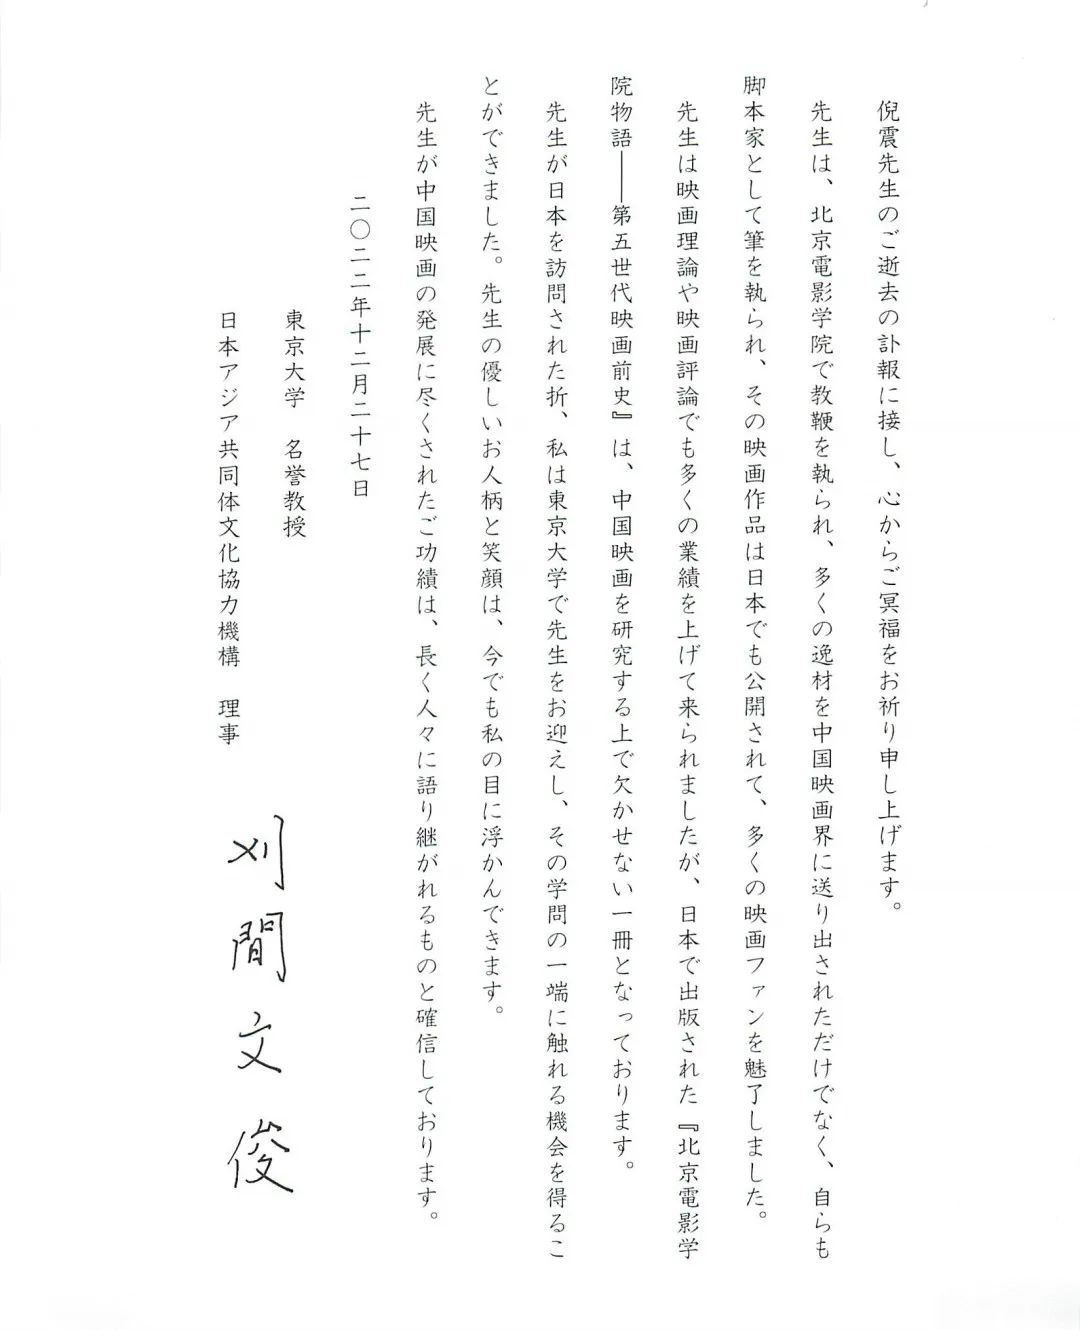 倪震先生のご逝去の訃報に接し、心からご冥福をお祈り申し上げます。
先生は、北京電影学院で教鞭を執られ、多くの逸材を中国映画界に送り出されただけでなく、自らも
脚本家として筆を執られ、その映画作品は日本でも公開されて、多くの映画ファンを魅了しました。
先生は映画理論や映画評論でも多くの業績を上げて来られましたが、日本で出版された『北京電影学
院物語──第五世代映画前史』は、中国映画を研究する上で欠かせない一冊となっております。
先生が日本を訪問された折、私は東京大学で先生をお迎えし、その学問の一端に触れる機会を得るこ
とができました。先生の優しいお人柄と笑顔は、今でも私の目に浮かんできます。
先生が中国映画の発展に尽くされたご功績は、長く人々に語り継がれるものと確信しております。
二〇二二年十二月二十七日
東京大学　名誉教授
日本アジア共同体文化協力機構　理事
刈間文俊